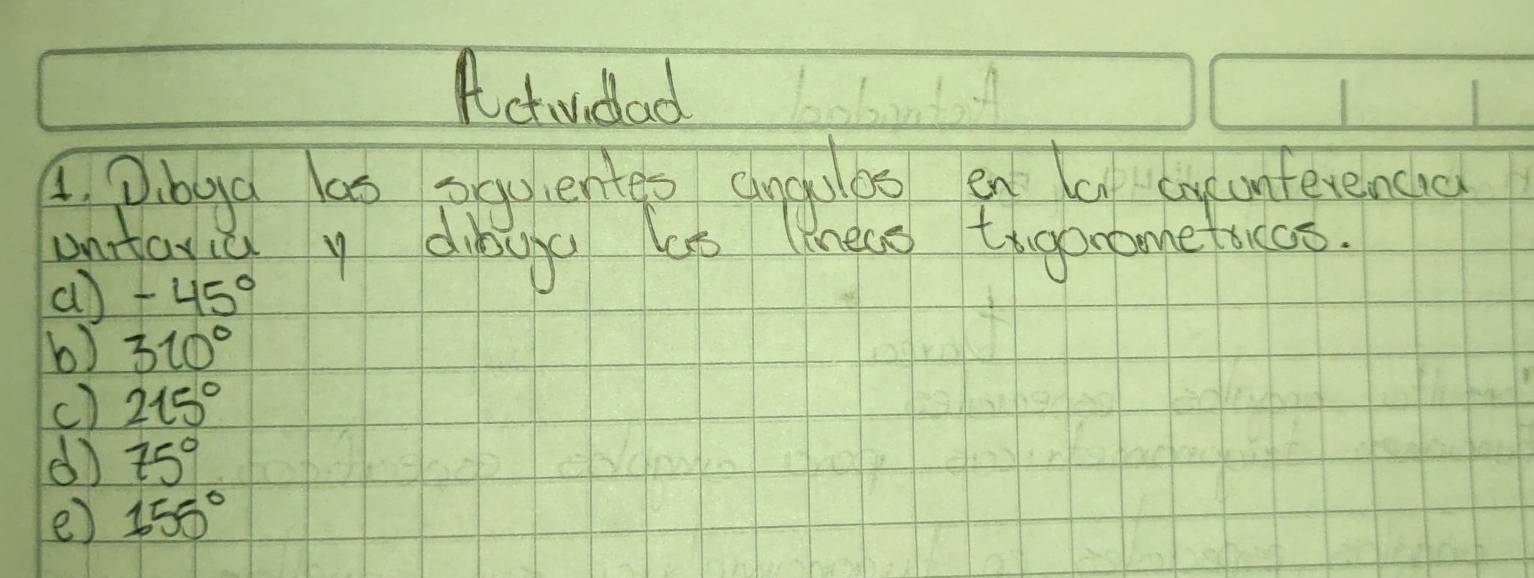 Actividad
1. Dibuja las siguientes angulos en la circunferencia
unitaria y dibuja las lineas trigonometricas.
a) -45°
b) 310°
c) 215°
d) 75°
e) 155°